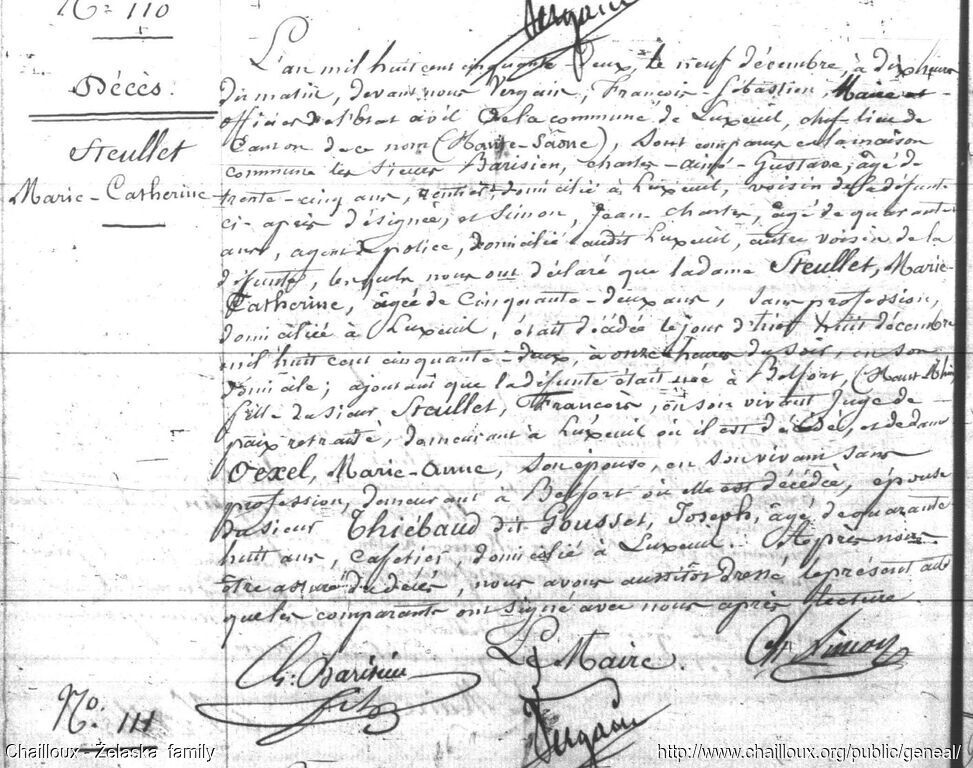 No. 110
Vergain
Décès.
Steullet
Marie-Catherine
L'an mil huit cent cinquante deux, le neuf décembre, à dix heures
du matin, devant nous Vergain, François-Sébastien, Maire et
officier de l'état civil de la commune de Luxeuil, chef lieu de
Canton de ce nom (Haute-Saône), sont comparus en la maison
commune les Sieurs Barisien, Charles-Aimé-Gustave, âgé de
trente-cinq ans, rentier, domicilié à Luxeuil, voisin de la défunte
ci-après désignée, et Simon, Jean-Charles, âgé de quarante
ans, agent de police, domicilié audit Luxeuil, autre voisin de la
défunte, lesquels nous ont déclaré que la dame Steullet, Marie-
Catherine, âgée de Cinquante-deux ans, sans profession,
domiciliée à Luxeuil, était décédée le jour d'hier huit décembre
mil huit cent cinquante-deux, à onze heures du soir, en son
domicile; ajoutant que la défunte était née à Belfort, (Haut-Rhin)
fille du sieur Steullet, François, en son vivant Juge de
paix retraité, demeurant à Luxeuil où il est décédé, et de dame
Oexel, Marie-Anne, son épouse, en son vivant sans
profession, demeurant à Belfort où elle est décédée, épouse
du sieur Thiébaud dit Gousset, Joseph, âgé de quarante
huit ans, cafetier, domicilié à Luxeuil. Après nous
être assuré du décès, nous avons aussitôt dressé le présent acte
que les comparants ont signé avec nous après lecture.
Ch. Barisien
Le Maire.
Ch. Simon
Vergain
No. 111
Chailloux - Żelaska family
http://www.chailloux.org/public/geneal/